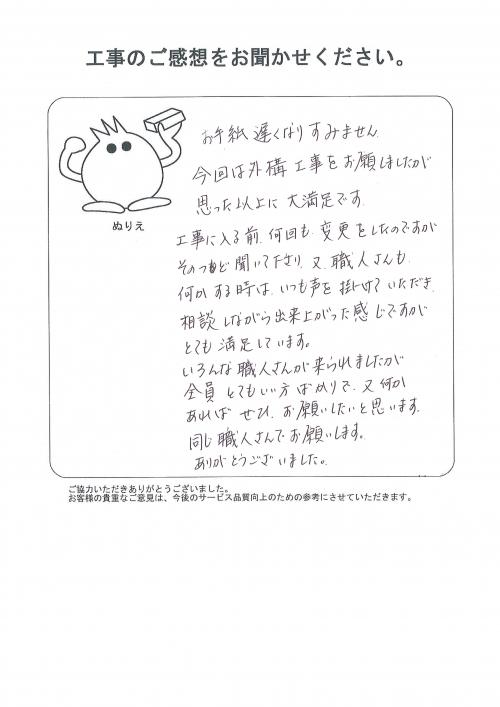 工事のご感想をお聞かせください。
ぬりえ
お手紙遅くなりすみません
今回は外構工事をお願しましたが
思った以上に大満足です。
工事に入る前、何回も変更をしたのですが
そのつど聞いて下さり、又、職人さんも、
何かする時は、いつも声を掛けていただき、
相談しながら出来上がった感じですが
とても満足しています。
いろんな職人さんが来られましたが
全員とてもいい方ばかりで、又何か
あればぜひ、お願いしたいと思います。
同じ職人さんでお願いします。
ありがとうございました。
ご協力いただきありがとうございました。
お客様の貴重なご意見は、今後のサービス品質向上のための参考にさせていただきます。